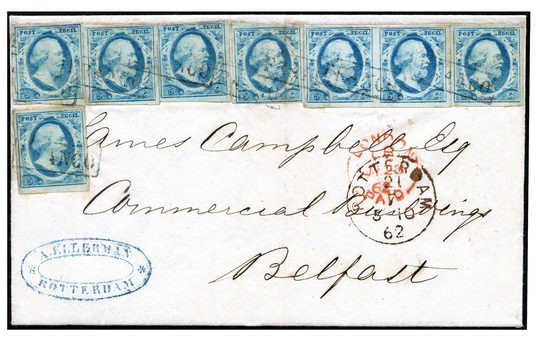 POST ZEGEL
POST ZEGEL
POST ZEGEL
POST ZEGEL
POST ZEGEL
POST ZEGEL
POST ZEGEL
POST ZEGEL
James Campbell Esq
Commercial Buildings
Belfast
LONDON
PAID
ROTTERDAM
62
A. ELLERMAN
ROTTERDAM